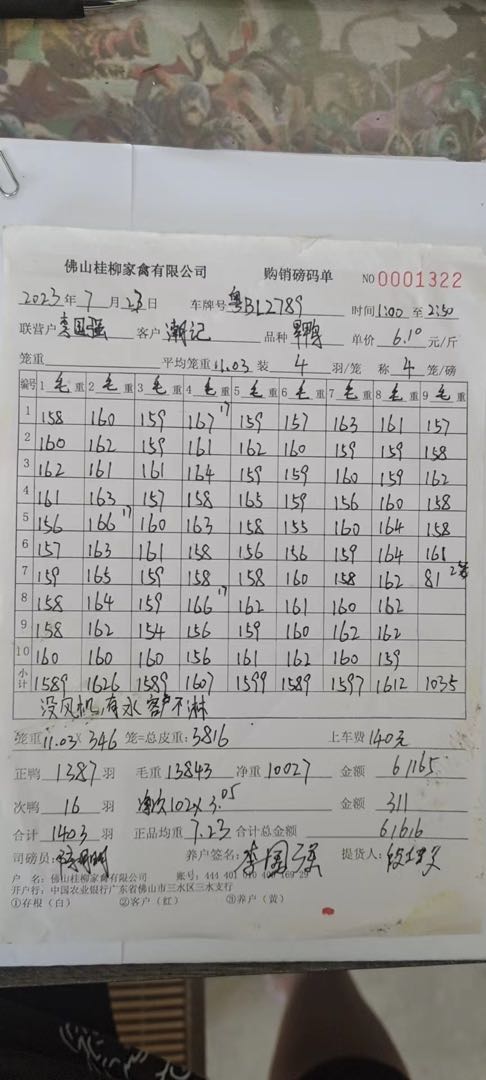 佛山桂柳家禽有限公司 购销磅码单 NO 0001322
2023年7月23日 车牌号 粤BL2789 时间 1:00 至 2:50
联营户 李国强 客户 潮记 品种 单价 6.10 元/斤
笼重 平均笼重 11.03 装 4 羽/笼 称 4 笼/磅
编号 1 毛重 2 毛重 3 毛重 4 毛重 5 毛重 6 毛重 7 毛重 8 毛重 9 毛重
1 158 160 159 167 17 159 157 163 161 157
2 160 162 159 161 162 160 159 159 158
3 162 161 161 164 159 159 160 159 162
4 161 163 157 158 165 159 156 160 158
5 156 166 17 160 163 158 155 160 164 158
6 157 163 161 158 156 156 159 164 161
7 159 165 159 158 158 160 158 162 81 2笼
8 158 164 159 166 17 162 161 160 162
9 158 162 154 156 159 160 162 162
10 160 160 160 156 161 162 160 159
小计 1589 1626 1589 1607 1599 1589 1597 1612 1035
没风机,有水 客户不淋
笼重 11.03 × 346 笼=总皮重:3816 上车费 140元
正鸭 1387 羽 毛重 13843 净重 10027 金额 61165
次鸭 16 羽 102×3.05 金额 311
合计 1403 羽 正品均重 7.23 合计总金额 61616
司磅员: 养户签名: 李国强 提货人:
户 名:佛山桂柳家禽有限公司 账号:444 401 010 400 169 29
开户行:中国农业银行广东省佛山市三水区三水支行
①存根(白) ②客户(红) ③养户(黄)